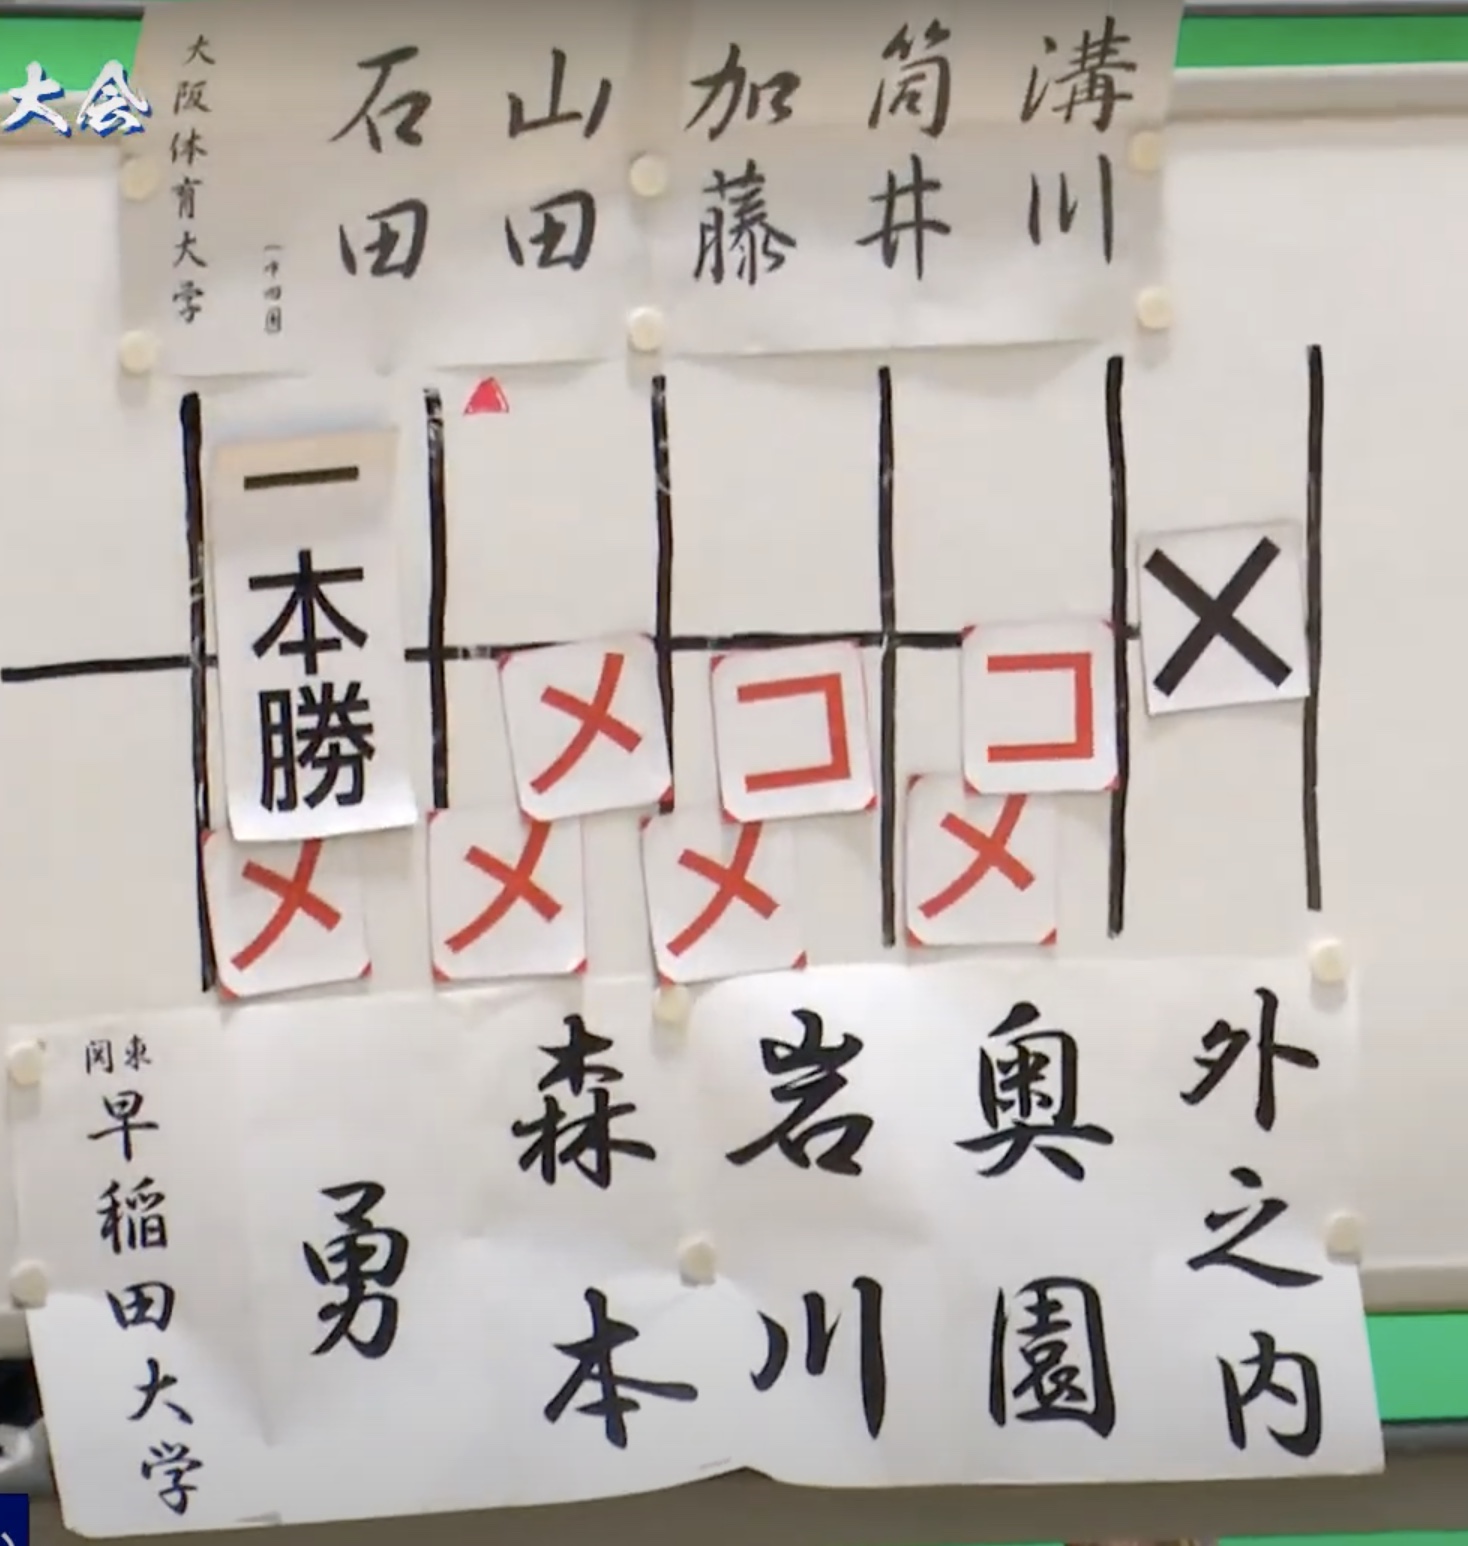 大会
溝川
筒井
加藤
山田
石田
大阪体育大学
一本勝
メ
メ
メ
コ
メ
コ
メ
×
外之内
奥園
岩川
森本
勇
関東
早稲田大学